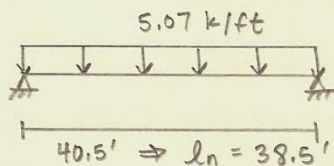 5.07 k/ft
40.5' ⇒ ln = 38.5'